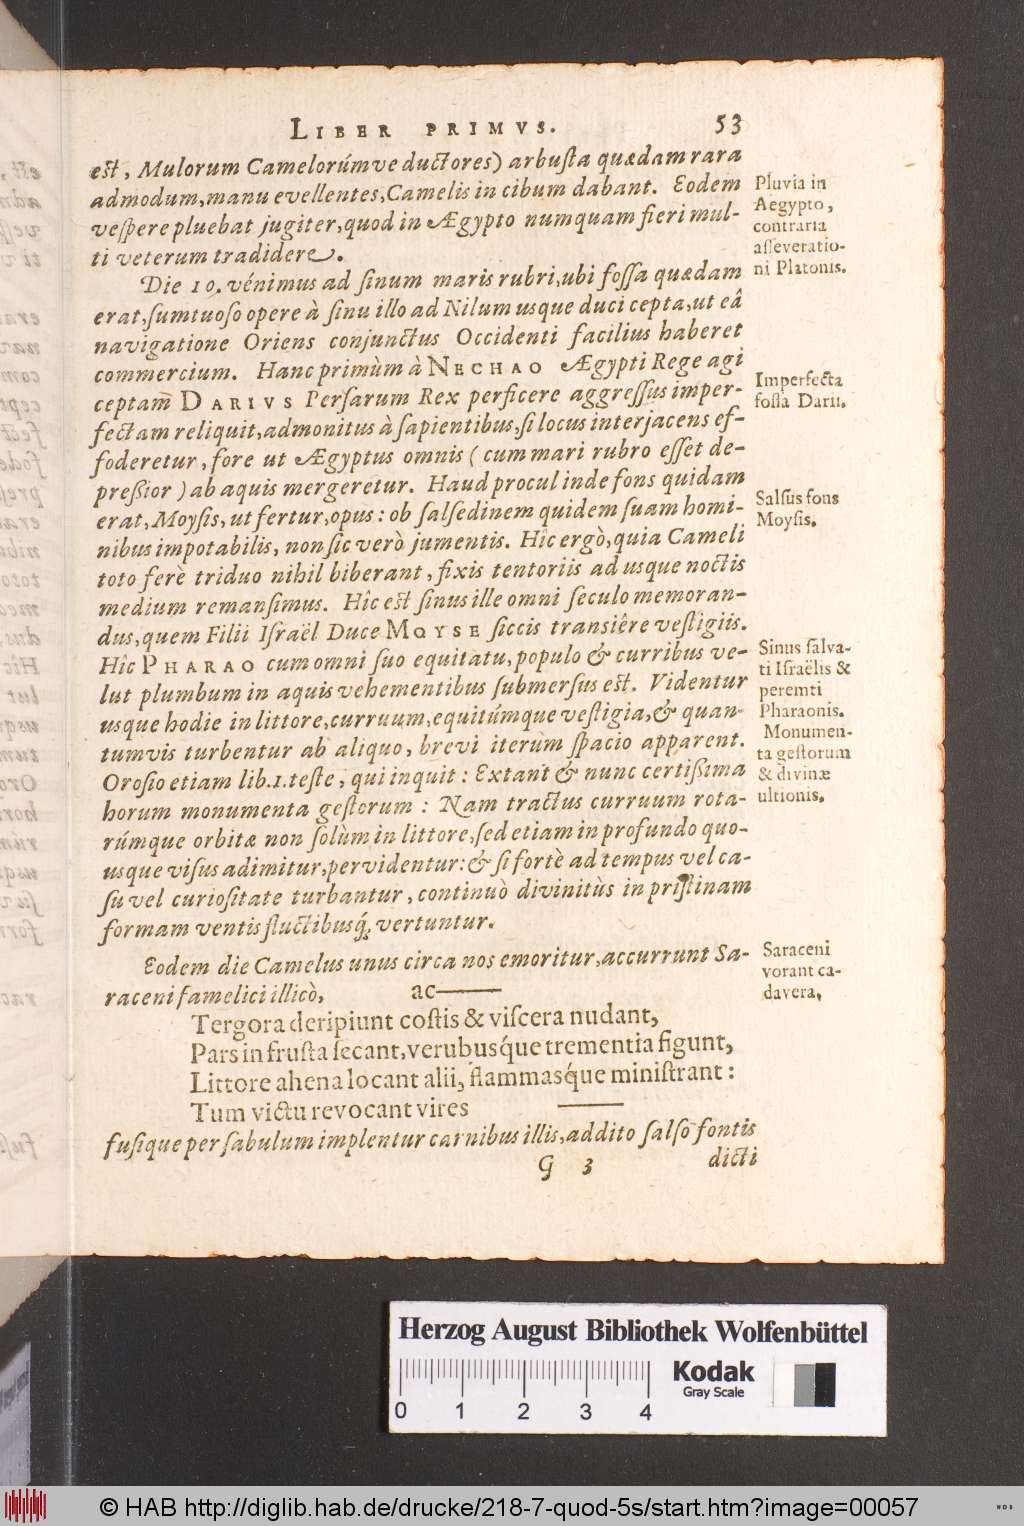 LIBER PRIMVS. 53
eſt, Mulorum Camelorúmve ductores) arbuſta quædam rara
admodum, manu evellentes, Camelis in cibum dabant. Eodem
veſpere pluebat jugiter, quod in Ægypto numquam fieri mul-
ti veterum tradidere.
Pluvia in
Aegypto,
contraria
aſſeveratio-
ni Platonis.
Die 10. vénimus ad ſinum maris rubri, ubi foſſa quædam
erat, ſumtuoſo opere à ſinu illo ad Nilum usque duci cepta, ut eâ
navigatione Oriens conjunctus Occidenti facilius haberet
commercium. Hanc primùm à NECHAO Ægypti Rege agi
ceptam DARIVS Perſarum Rex perficere aggreſſus imper-
fectam reliquit, admonitus à ſapientibus, ſi locus interjacens ef-
foderetur, fore ut Ægyptus omnis (cum mari rubro eſſet de-
preßior) ab aquis mergeretur. Haud procul inde fons quidam
erat, Moyſis, ut fertur, opus: ob ſalſedinem quidem ſuam homi-
nibus impotabilis, non ſic verò jumentis. Hîc ergò, quia Cameli
toto ferè triduo nihil biberant, fixis tentoriis ad usque noctis
medium remanſimus. Hîc eſt ſinus ille omni ſeculo memoran-
dus, quem Filii Iſraël Duce MOYSE ſiccis transiêre veſtigiis.
Hîc PHARAO cum omni ſuo equitatu, populo & curribus ve-
lut plumbum in aquis vehementibus ſubmerſus eſt. Videntur
usque hodie in littore, curruum, equitúmque veſtigia, & quan-
tumvis turbentur ab aliquo, brevi iterùm ſpacio apparent.
Oroſio etiam lib. 1. teſte, qui inquit: Extant & nunc certißima
horum monumenta geſtorum: Nam tractus curruum rota-
rúmque orbitæ non ſolùm in littore, ſed etiam in profundo quo-
usque viſus adimitur, pervidentur: & ſi fortè ad tempus vel ca-
ſu vel curioſitate turbantur, continuò divinitùs in priſtinam
formam ventis fluctibusq́; vertuntur.
Imperfecta
foſſa Darii.
Salſus fons
Moyſis.
Sinus ſalva-
ti Iſraëlis &
peremti
Pharaonis.
Monumen-
ta geſtorum
& divinæ
ultionis.
Eodem die Camelus unus circa nos emoritur, accurrunt Sa-
raceni famelici illicò, ac——
Saraceni
vorant ca-
davera.
Tergora deripiunt coſtis & viſcera nudant,
Pars in fruſta ſecant, verubusq́ue trementia figunt,
Littore ahena locant alii, flammasq́ue miniſtrant:
Tum victu revocant vires ——
fuſique per ſabulum implentur carnibus illis, addito ſalſo fontis
G 3 dicti
Herzog August Bibliothek Wolfenbüttel
Kodak
Gray Scale
0 1 2 3 4
© HAB http://diglib.hab.de/drucke/218-7-quod-5s/start.htm?image=00057